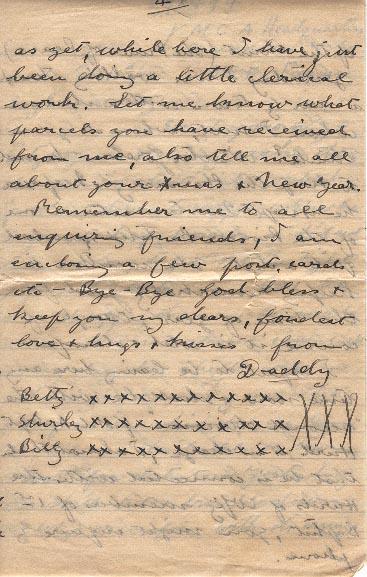 4
as yet, while here I have just
been doing a little clerical
work. Let me know what
parcels you have received
from me, also tell me all
about your Xmas & New Year.
Remember me to all
enquiring friends, I am
enclosing a few post cards
etc - Bye-Bye God bless &
keep you my dears, fondest
love & hugs & kisses from
Daddy
Betty xxxxxxxxxxxxx
Shirley xxxxxxxxxxxx XXX
Billy xxxxxxxxxxxx